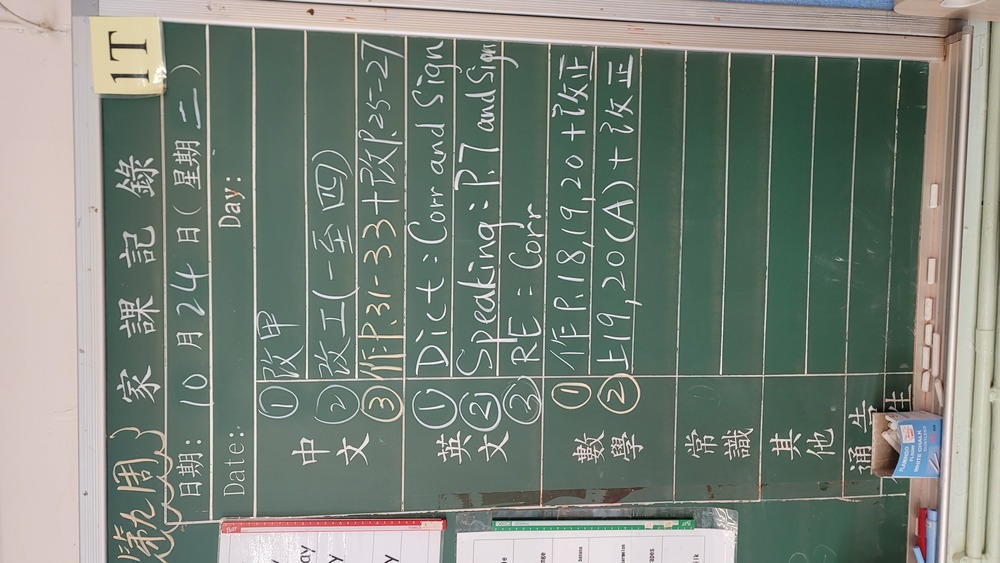 1T
(第九周)
家課記錄
日期: 10月24日(星期二)
Date: Day:
中文
① 改甲
② 改工(一至四)
③ 作P.31-33+改P.25-27
英文
① Dict: Corr and Sign
② Speaking: P.7 and Sign
③ RE: Corr
數學
① 作P.18,19,20+改正
② 上19,20(A)+改正
常識
其他
通告
FLAMINGO
WHITE CHALK